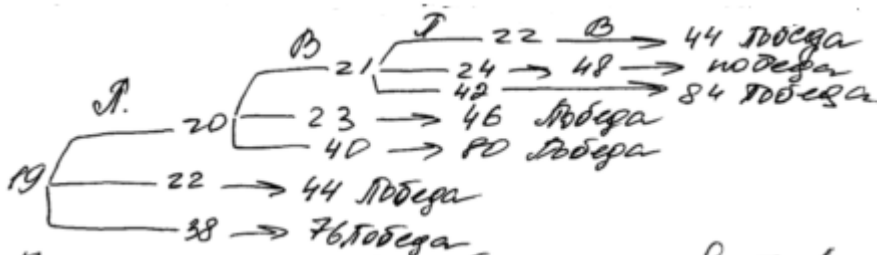 П В 22 В → 44 Победа
В 21 24 → 48 → победа
42 → 84 Победа
П. 20 23 → 46 Победа
40 → 80 Победа
19 22 → 44 Победа
38 → 76 Победа